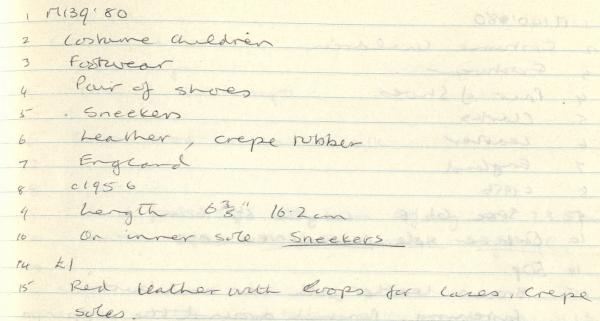 1 M139'80
2 Costume Children
3 Footwear
4 Pair of shoes
5 . Sneekers
6 Leather, crepe rubber
7 England
8 c1956
9 Length 6 3/8" 16.2cm
10 On inner sole Sneekers
14 £1
15 Red leather with loops for laces. Crepe
soles.